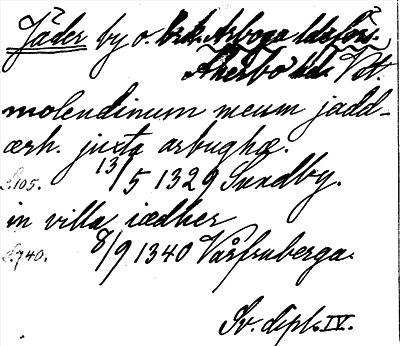 Jäder by o. krk. Arboga ldsförs.
Åkerbo hd. Vstl.
molendinum meum jadd-
ærh. juxta arbughæ.
S.105. 13/5 1329 Sundby.
in villa iædher
S.740. 8/9 1340 Vårfruberga.
Sv. dipl. IV.